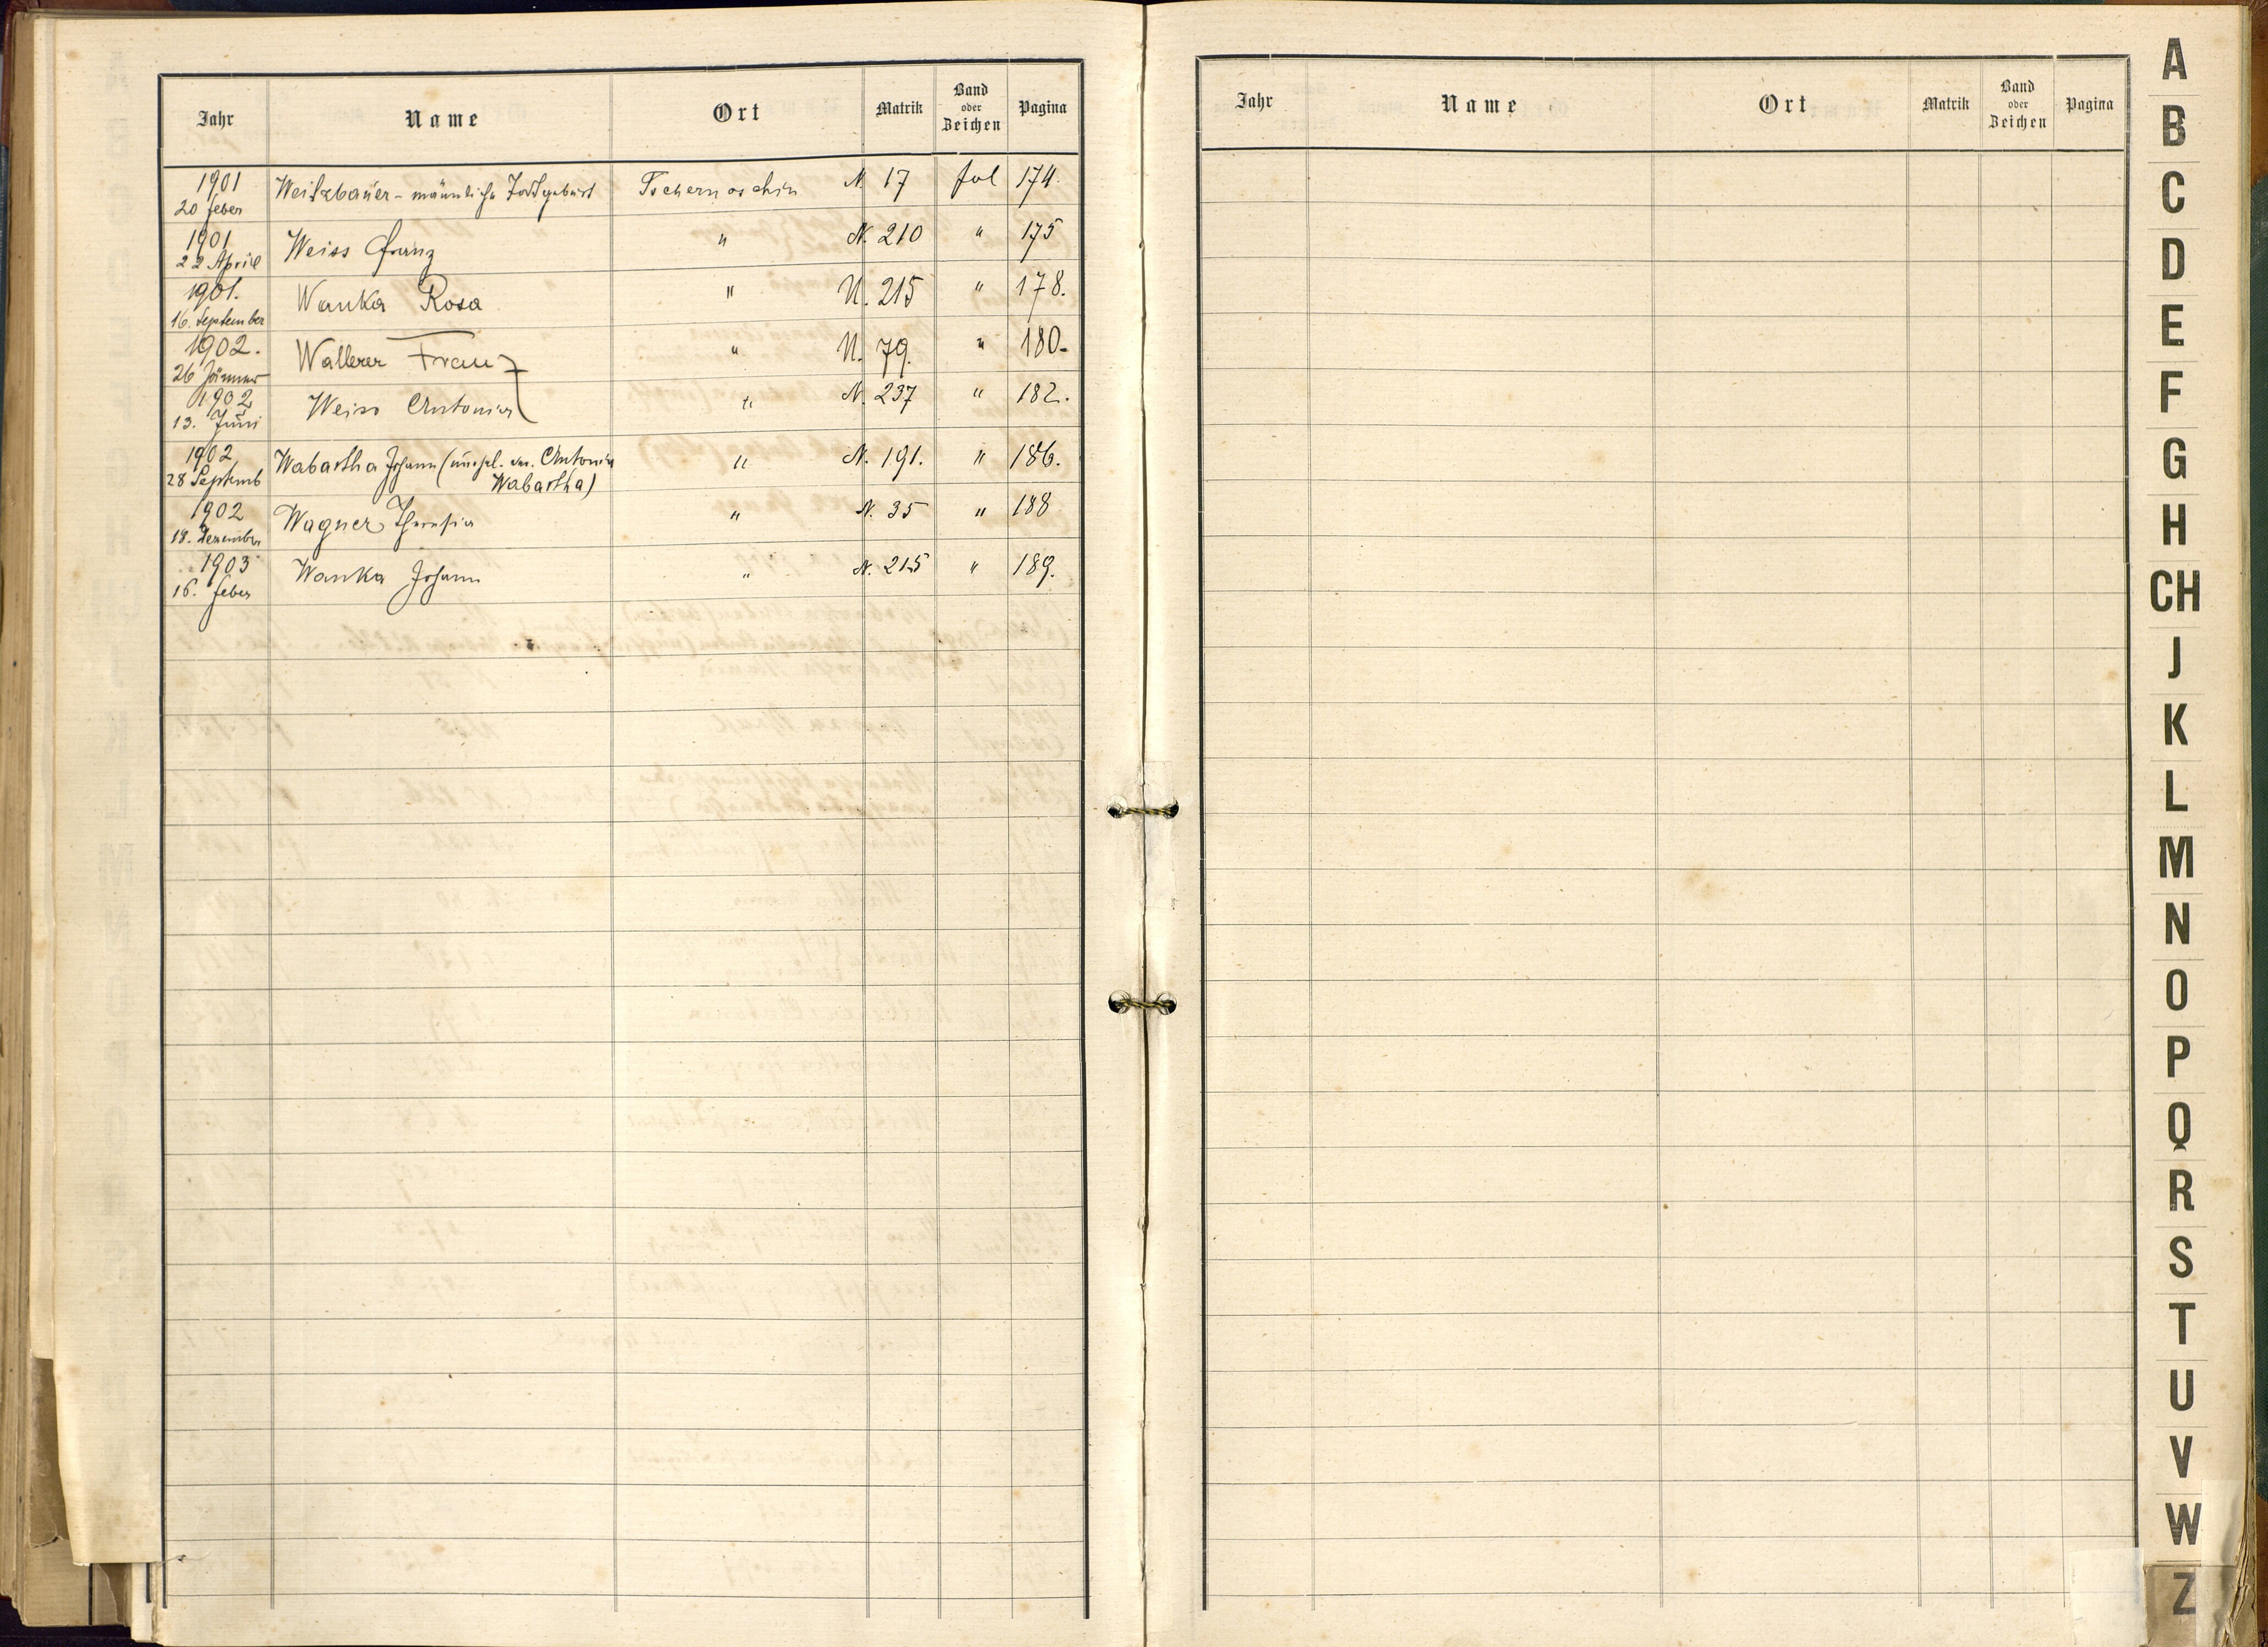 Jahr Name Ort Matrik Band oder Zeichen Pagina
1901 Weitzbauer - männliche Todtgeburt Tschernoschin N. 17 fol 174.
20 feber
1901 Weiss Franz " N. 210 " 175
22 April
1901. Wanka Rosa " N. 215 " 178.
16. September
1902. Wallerer Franz " N. 79. " 180.
26 Jänner
1902 Weiss Antonia " N. 237 " 182.
13. Juni
1902 Wabartha Johann (unehel. der Antonia " N. 191. " 186.
28 Septemb Wabartha)
1902 Wagner Theresia " N. 35 " 188
18. Dezember
1903 Wanka Johann " N. 215 " 189.
16. feber
Jahr Name Ort Matrik Band oder Zeichen Pagina
A
B
C
D
E
F
G
H
CH
J
K
L
M
N
O
P
Q
R
S
T
U
V
W
Z